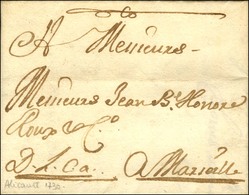 A Messieurs
Messieurs Jean Bt. Honoré
Roux & Co.
D. L. Ca.. a Marseille
Alicante 1730